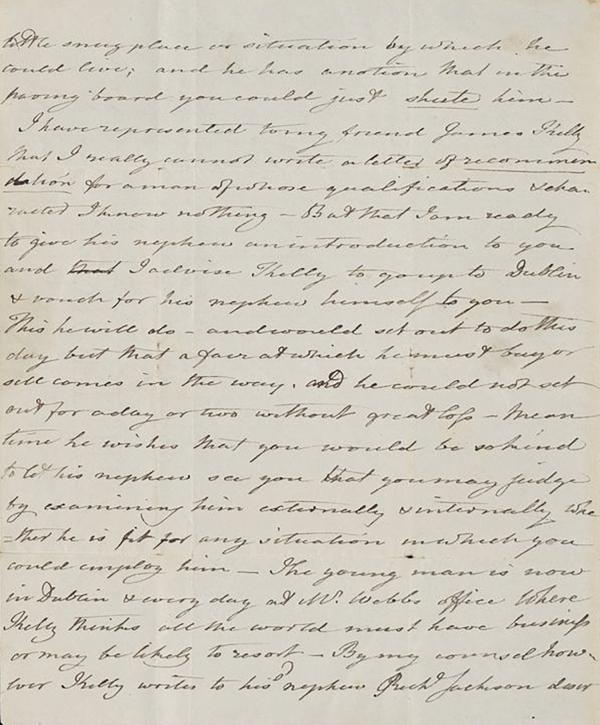 little snug place or situation by which he
could live; and he has a notion that in the
paving board you could just suite him —
I have represented to my friend James Kelly
that I really cannot write a letter of recommen
dation for a man of whose qualifications & cha
racter I know nothing — But that I am ready
to give his nephew an introduction to you
and that I advise Kelly to go up to Dublin
& vouch for his nephew himself to you —
This he will do — and would set out to do this
day but that a fair at which he must buy or
sell comes in the way. and he could not set
out for a day or two without great loss — Mean
time he wishes that you would be so kind
to let his nephew see you that you may judge
by examining him externally & internally whe
=ther he is fit for any situation in which you
could employ him — The young man is now
in Dublin & every day at Mr. Webbs office where
Kelly thinks all the world must have business
or may be likely to resort — By my counsel how-
ever Kelly writes to his nephew Richd Jackson